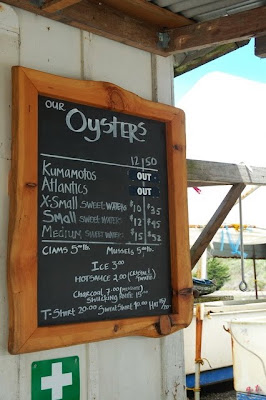 OUR
OYSTERS
12 | 50
KUMAMOTOS OUT
ATLANTICS OUT
X-SMALL SWEET WATERS $10 $35
SMALL SWEET WATERS $12 $45
MEDIUM SWEET WATERS $15 $52
CLAMS 5.00/lb MUSSELS 5.00/lb
ICE 3.00
HOT SAUCE 2.00
CHARCOAL 7.00
SHUCKING KNIFE 15.00
T-SHIRT 20.00 SWEATSHIRT 40.00 HAT